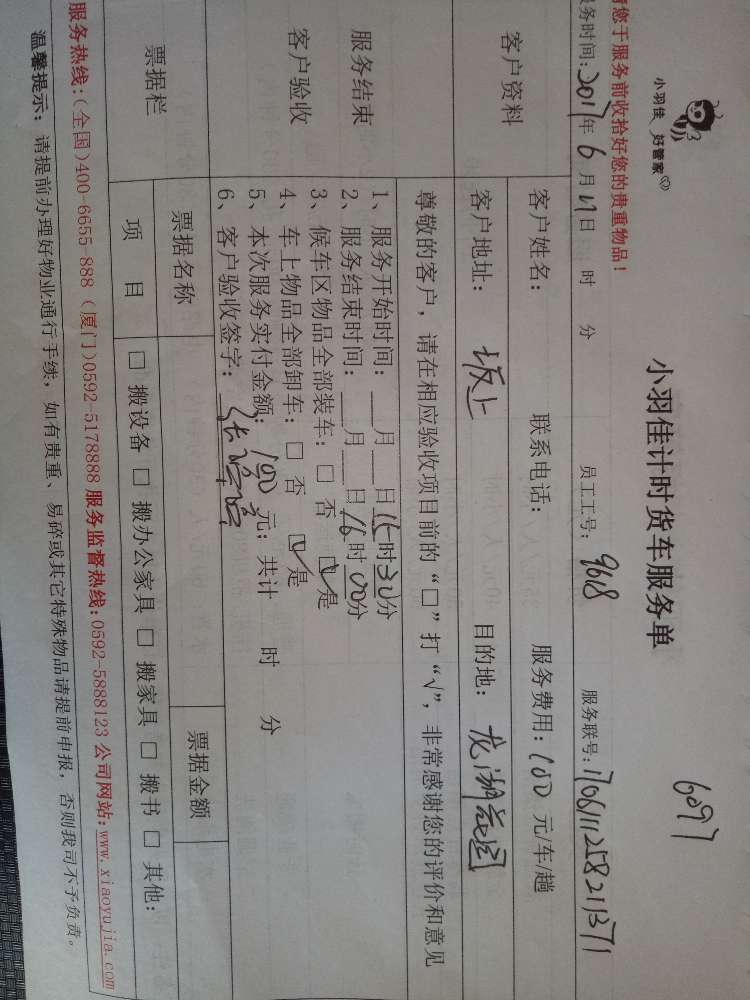 小羽佳 好管家
小羽佳计时货车服务单
6097
请您于服务前收拾好您的贵重物品！
服务时间：2017年 6 月 11 日 时 分 员工工号：9618 服务联号：
客户资料
客户姓名： 联系电话： 服务费用：100 元/车/趟
客户地址：坂上 目的地：龙湖花园
尊敬的客户，请在相应验收项目前的“□”打“√”，非常感谢您的评价和意见
服务结束
客户验收
1、服务开始时间：___月___日15时30分
2、服务结束时间：___月___日16时00分
3、候车区物品全部装车：□ 否 ☑是
4、车上物品全部卸车：□ 否 ☑是
5、本次服务实付金额：100 元；共计 时 分
6、客户验收签字：
票据栏
票据名称 票据金额
项 目 □ 搬设备 □ 搬办公家具 □ 搬家具 □ 搬书 □ 其他：
服务热线：(全国)400-6655-888 (厦门)0592-5178888 服务监督热线：0592-5888123 公司网站：www.xiaoyujia.com
温馨提示：请提前办理好物业通行手续，如有贵重、易碎或其它特殊物品请提前申报，否则我司不予负责。